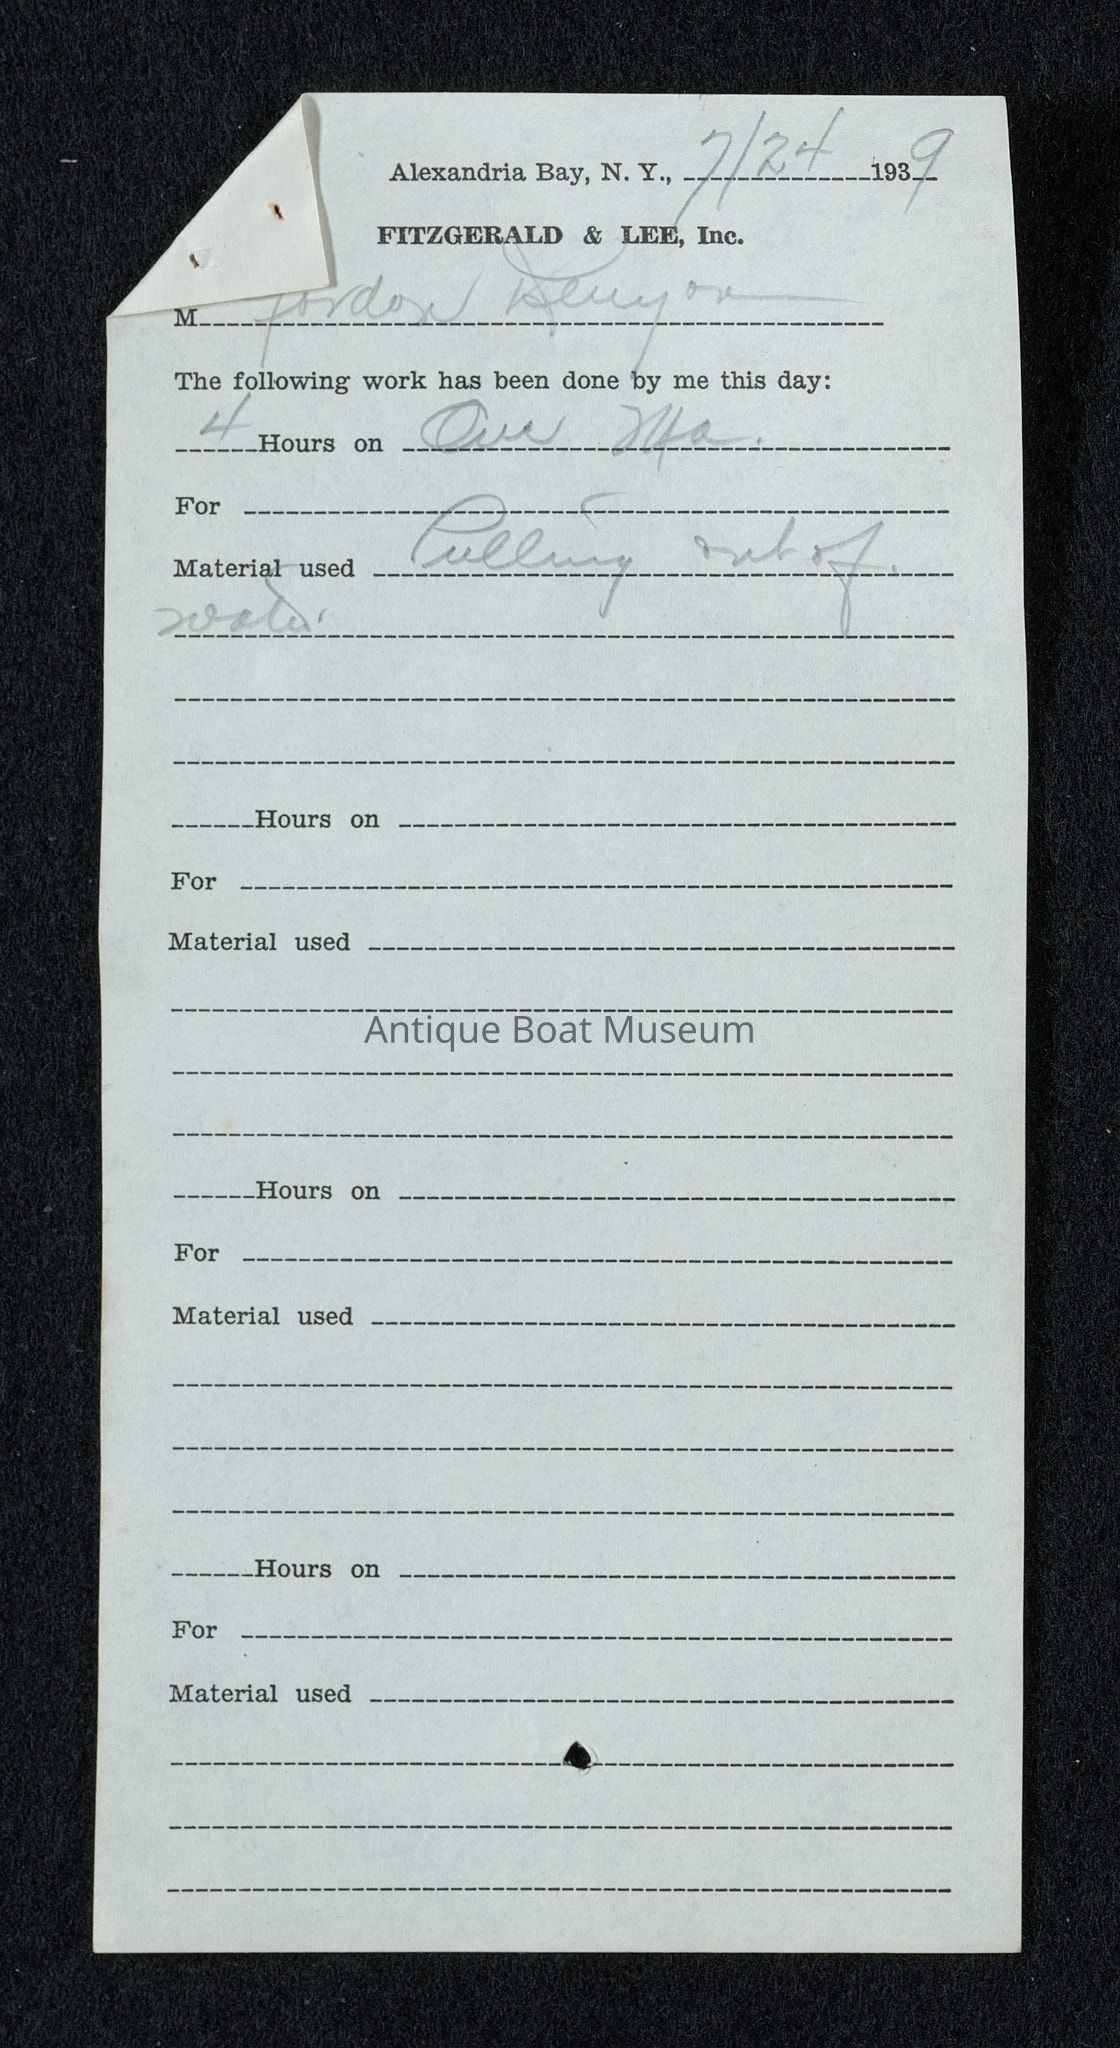 Alexandria Bay, N. Y., 7/24 1939
FITZGERALD & LEE, Inc.
M Gordon Kenyon
The following work has been done by me this day:
4 Hours on
For
Material used Pulling out of
water.
Hours on
For
Material used
Antique Boat Museum
Hours on
For
Material used
Hours on
For
Material used